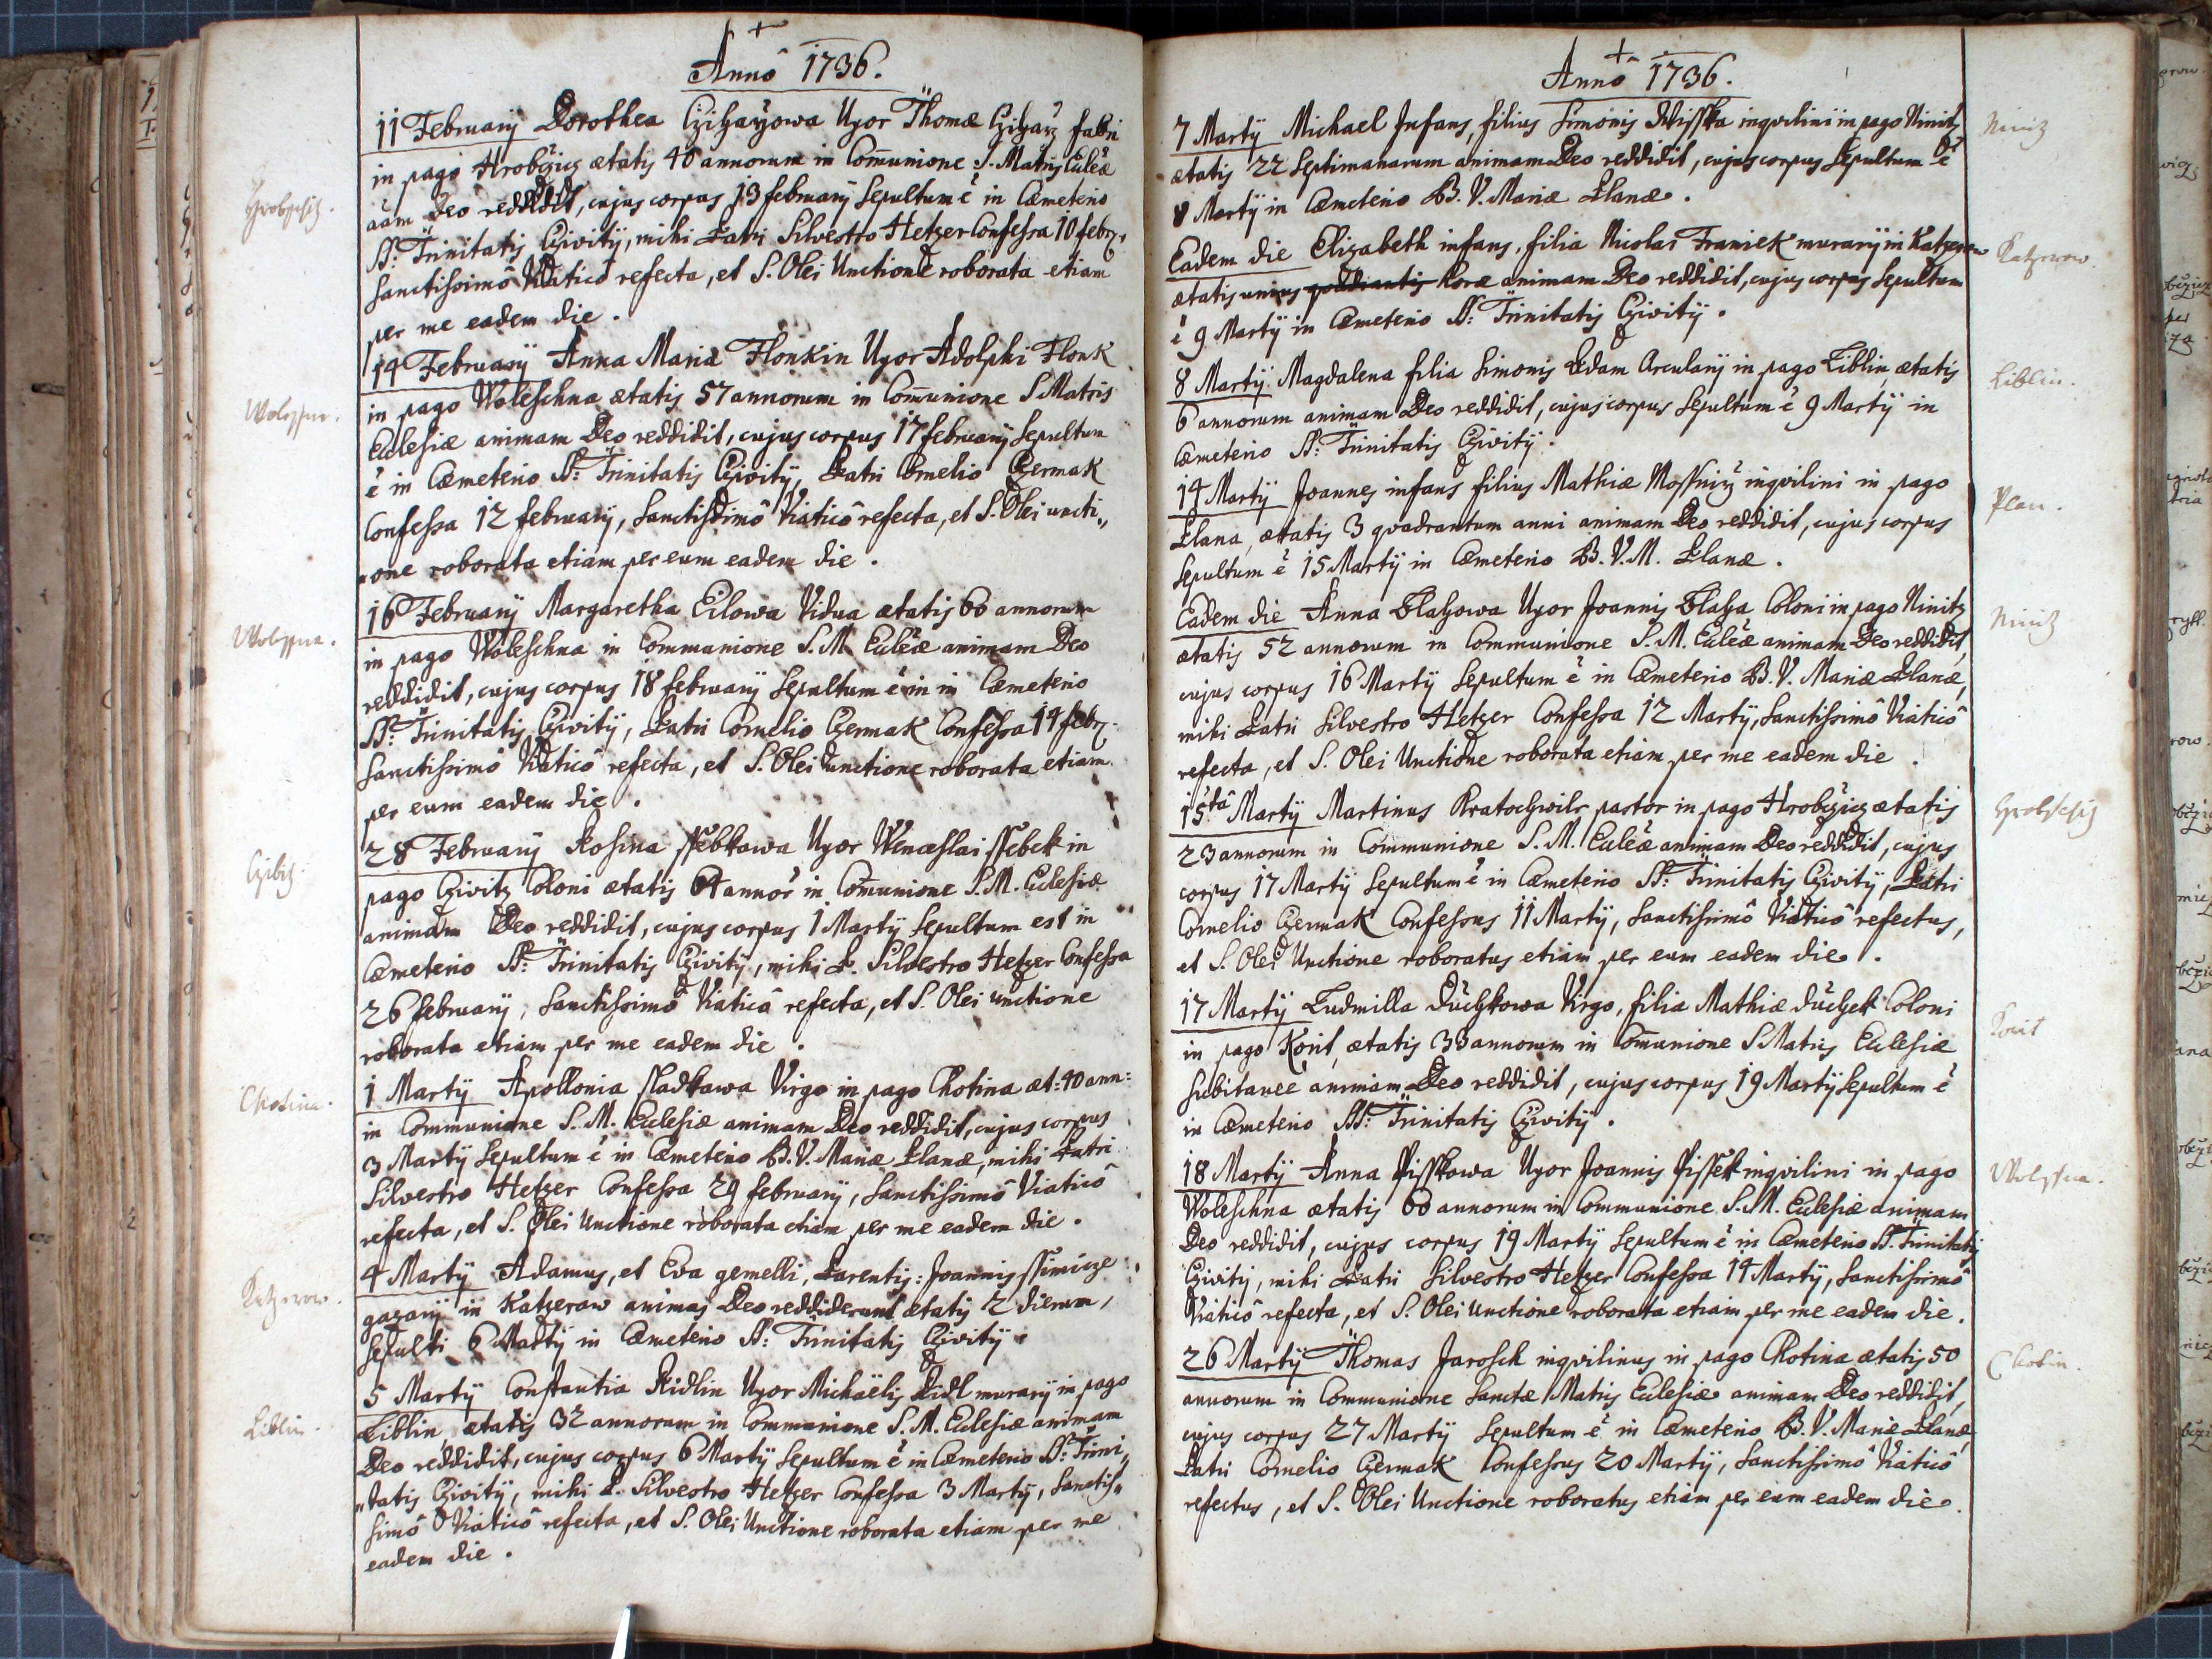 Annô 1736.
11 Februarÿ Dorothea Czihaÿowa Uxor Thomæ Cziharz fabri
in pago Hrobčzicz ætatis 40 annorum in Com̄unione S. Matris Eccleæ
Hrobschitz.
aām Deo reddidit, cujus corpus 13 februarÿ Sepultum ē in Cæmeterio
SS: Trinitatis Cziwitÿ, mihi Patri Silvestro Hetzer Confessa 10 febr.
Sanctissimô Viaticô refecta, et S. Olei Unctione roborata etiam
per me eadem die.
14 Februarÿ Anna Maria Flonkin Uxor Adolphi Flonk
in pago Woleschna ætatis 57 annorum in Com̄unione S Matris
Ecclesiæ animam Deo reddidit, cujus corpus 17 februarÿ Sepultum
ē in Cæmeterio SS: Trinitatis Cziwitÿ, Patri Cornelio Czermak
Confessa 12 februarÿ, Sanctissimô Viaticô refecta, et S. Olei uncti„
„one roborata etiam per eum eadem die.
16 Februarÿ Margaretha Eilowa Vidua ætatis 60 annorum
in pago Woleschna in Communione S. M. Eccleæ animam Deo
reddidit, cujus corpus 18 februarÿ Sepultum ē in in Cæmeterio
SS: Trinitatis Cziwitÿ, Patri Cornelio Czermak Confessa 14 febr.
Sanctissimô Viaticô refecta, et S. Olei unctione roborata etiam
per eum eadem die.
28 Februarÿ Rosina ssebkowa Uxor Wenceslai ssebek in
pago Cziwitz Coloni ætatis 64 annor̄ in Com̄unione S. M. Ecclesiæ
animam Deo reddidit, cujus corpus 1 Martÿ Sepultum est in
Cæmeterio SS: Trinitatis Cziwitÿ, mihi P. Silvestro Hetzer Confessa
26 februarÿ, Sanctissimô Viaticô refecta, et S. Olei unctione
roborata etiam per me eadem die.
1 Martÿ Apollonia sladkowa Virgo in pago Chotina æt: 40 ann:
Chotina.
in Communione S. M. Ecclesiæ animam Deo reddidit, cujus corpus
3 Martÿ Sepultum ē in Cæmeterio B. V. Mariæ Planæ, mihi Patri
Silvestro Hetzer Confessa 29 februarÿ, Sanctissimô Viaticô
refecta, et S. Olei Unctione roborata etiam per me eadem die.
4 Martÿ Adamus, et Eva gemelli, Parentis: Joannis ssimicze
Katzerow.
gazarÿ in Katzerow animas Deo reddiderunt ætatis 2 dierum,
sepulti 6 Martÿ in Cæmeterio SS: Trinitatis Cziwitÿ.
5 Martÿ Constantia Ridlin Uxor Michaëlis Ridl murarÿ in pago
Liblin.
Liblin, ætatis 32 annorum in Communione S. M. Ecclesiæ animam
Deo reddidit, cujus corpus 6 Martÿ Sepultum ē in Cæmeterio SS: Trini„
„tatis Cziwitÿ, mihi P. Silvestro Hetzer Confessa 3 Martÿ, Sanctis„
simô Viaticô refecta, et S. Olei Unctione roborata etiam per me
eadem die.
Annô 1736.
7 Martÿ Michael Infans, filius Simonis Wisska inqvilini in pago Ninitz
Ninitz
ætatis 22 Septimanarum animam Deo reddidit, cujus corpus Sepultum ē
8 Martÿ in Cæmeterio B. V. Mariæ Planæ.
Eadem die Elizabeth infans, filia Nicolai Franiek murarÿ in Katzerow
Katzerow.
ætatis unius qvadrantis horæ animam Deo reddidit, cujus corpus Sepultum
ē 9 Martÿ in Cæmeterio SS: Trinitatis Cziwitÿ.
8 Martÿ Magdalena filia Simonis Adam Arcularÿ in pago Liblin, ætatis
Liblin.
6 annorum animam Deo reddidit, cujus corpus Sepultum ē 9 Martÿ in
Cæmeterio SS: Trinitatis Cziwitÿ.
14 Martÿ Joannes infans filius Mathiæ Mossnicz inqvilini in pago
Plan.
Plana, ætatis 3 qvadrantum anni animam Deo reddidit, cujus corpus
Sepultum ē 15 Martÿ in Cæmeterio B. V. M. Planæ.
Eadem die Anna Blahowa Uxor Joannis Blaha Coloni in pago Ninitz
Ninitz
ætatis 52 annorum in Communione S. M. Eccleæ animam Deo reddidit,
cujus corpus 16 Martÿ Sepultum ē in Cæmeterio B. V. Mariæ Planæ,
mihi Patri Silvestro Hetzer Confessa 12 Martÿ, Sanctissimô Viaticô
refecta, et S. Olei Unctione roborata etiam per me eadem die.
15ta Martÿ Martinus Kratochwilr pastor in pago Hrobčzicz ætatis
Hrobschitz
23 annorum in Communione S. M. Eccleæ animam Deo reddidit, cujus
corpus 17 Martÿ Sepultum ē in Cæmeterio SS: Trinitatis Cziwitÿ, Patri
Cornelio Czermak Confessus 11 Martÿ, Sanctissimô Viaticô refectus,
et S. Olei Unctione roboratus etiam per eum eadem die.
17 Martÿ Ludmilla Duchkowa Virgo, filia Mathiæ Duchek Coloni
in pago Korit, ætatis 33 annorum in Com̄unione S Matris Ecclesiæ
Korit
Subitaneè animam Deo reddidit, cujus corpus 19 Martÿ Sepultum ē
in Cæmeterio SS: Trinitatis Cziwitÿ.
18 Martÿ Anna Pisskowa Uxor Joannis Pissek inqvilini in pago
Woleschna ætatis 60 annorum in Communione S. M. Ecclesiæ animam
Deo reddidit, cujus corpus 19 Martÿ Sepultum ē in Cæmeterio SS. Trinitatis
Cziwitÿ, mihi Patri Silvestro Hetzer Confessa 14 Martÿ, Sanctissimô
Viaticô refecta, et S. Olei Unctione roborata etiam per me eadem die.
26 Martÿ Thomas Jarosch inqvilinus in pago Chotina ætatis 50
Chotin.
annorum in Communione Sanctæ Matris Ecclesiæ animam Deo reddidit,
cujus corpus 27 Martÿ Sepultum ē in Cæmeterio B. V. Mariæ Planæ
Patri Cornelio Czermak Confessus 20 Martÿ, Sanctissimô Viaticô
refectus, et S. Olei Unctione roboratus etiam per eum eadem die.